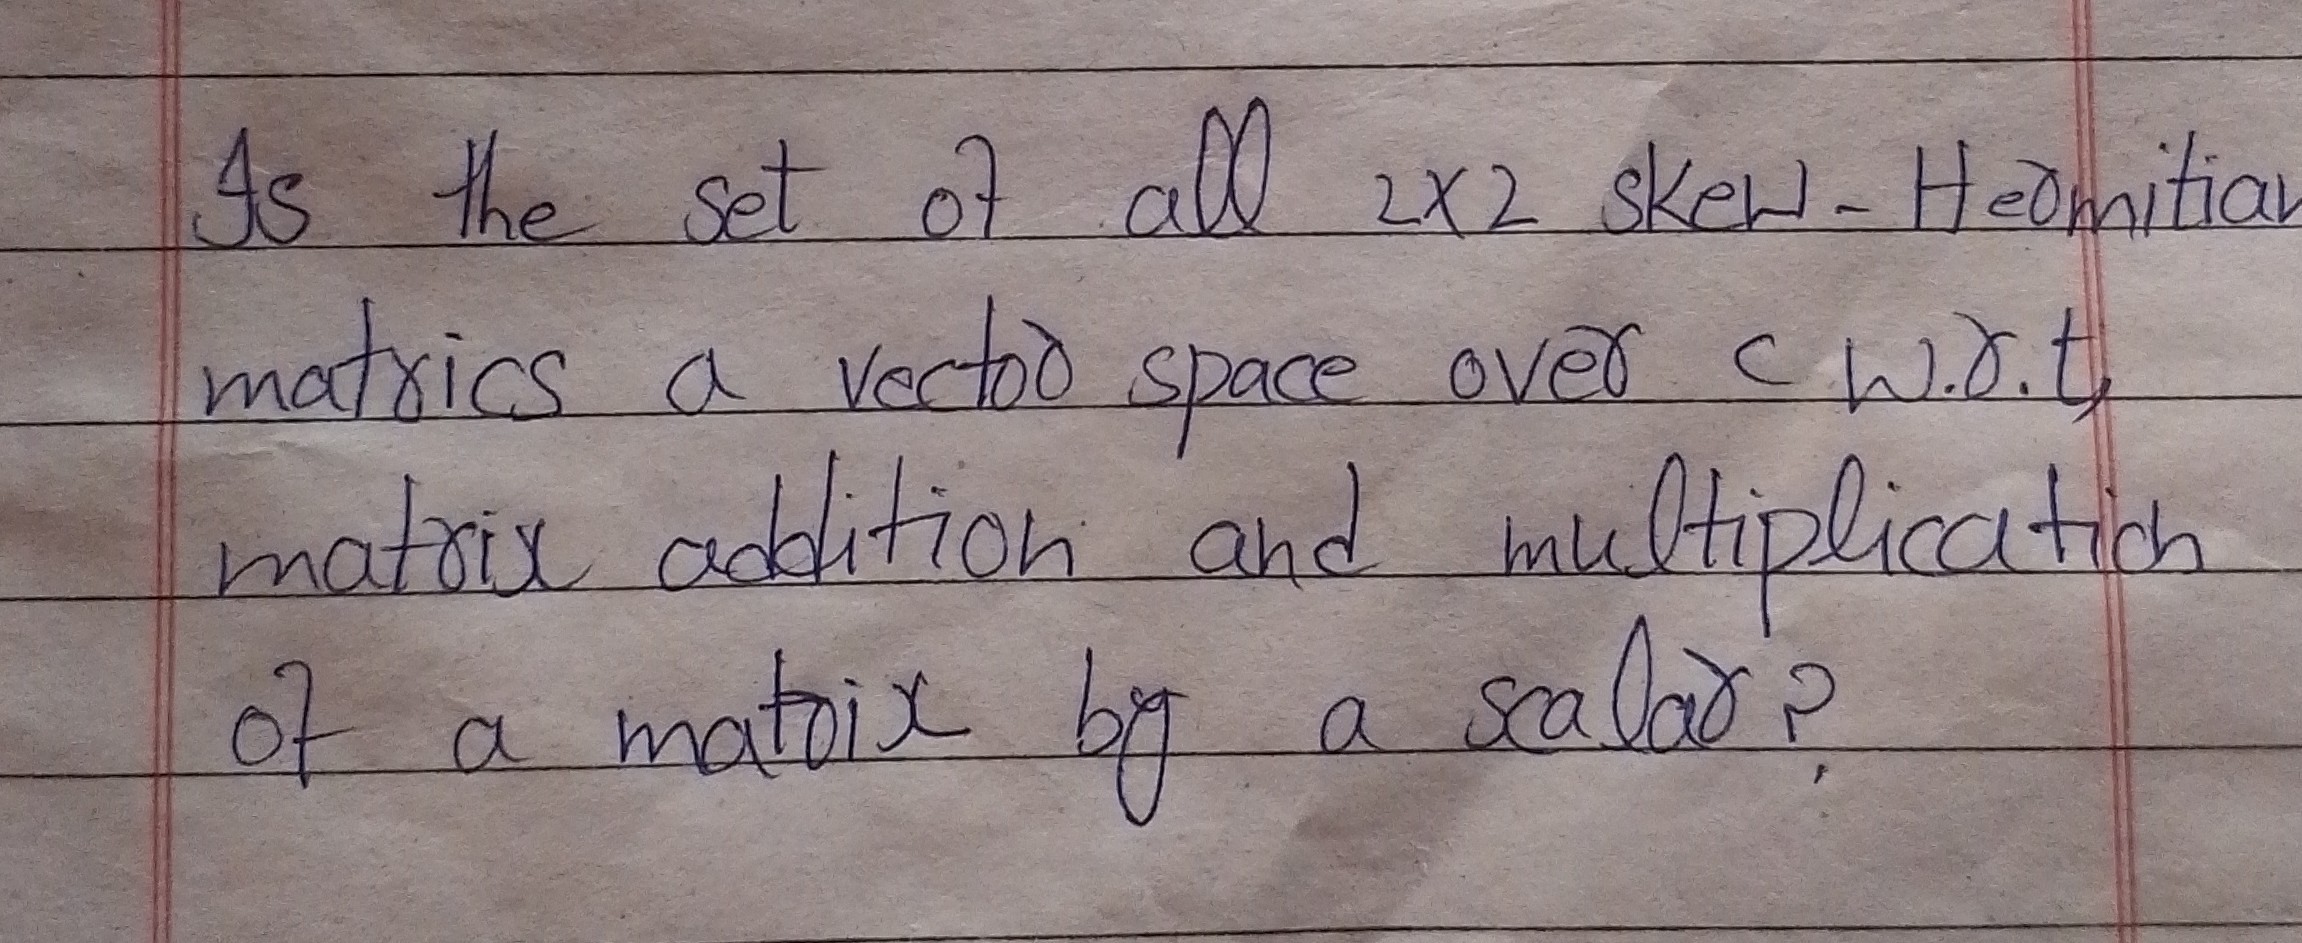 Is the set of all 2x2 skew-Hermitian
matrics a vector space over C w.r.t,
matrix addition and multiplication
of a matrix by a scalar?